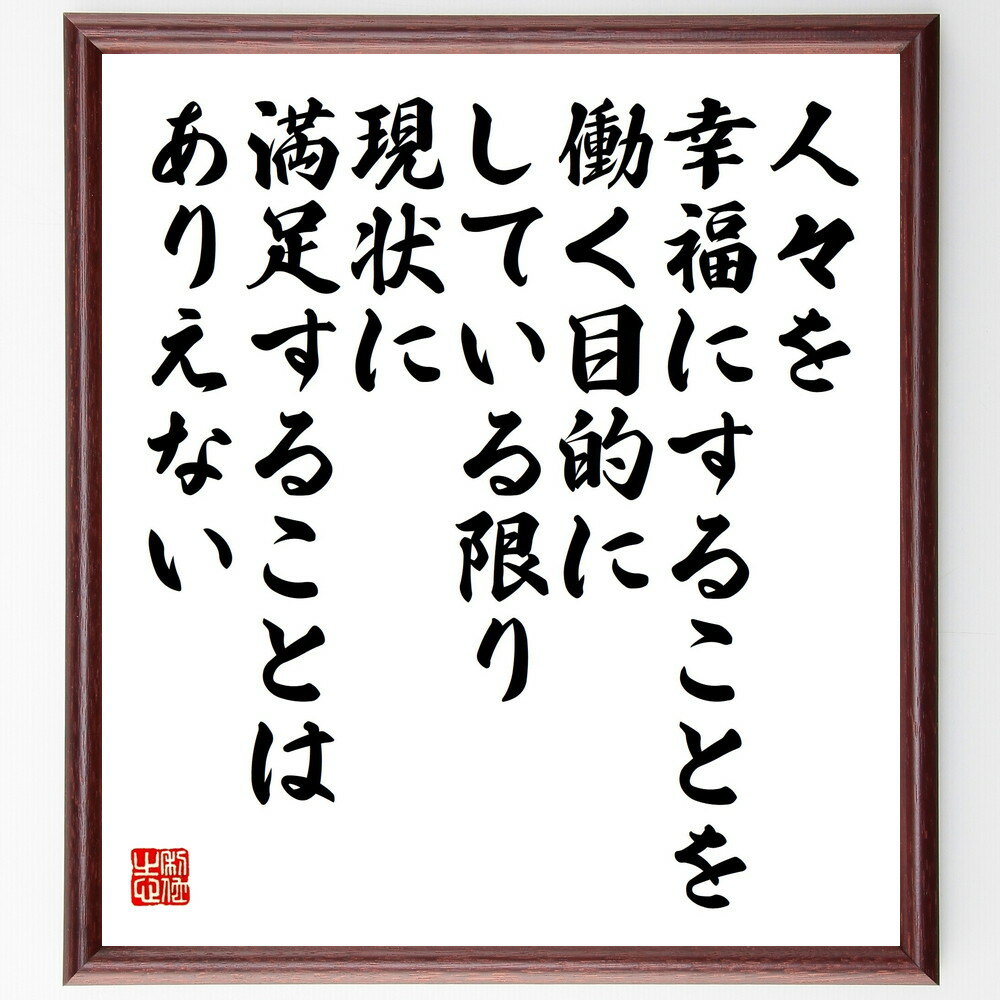 人々を
幸福にすることを
働く目的に
している限り
現状に
満足することは
ありえない